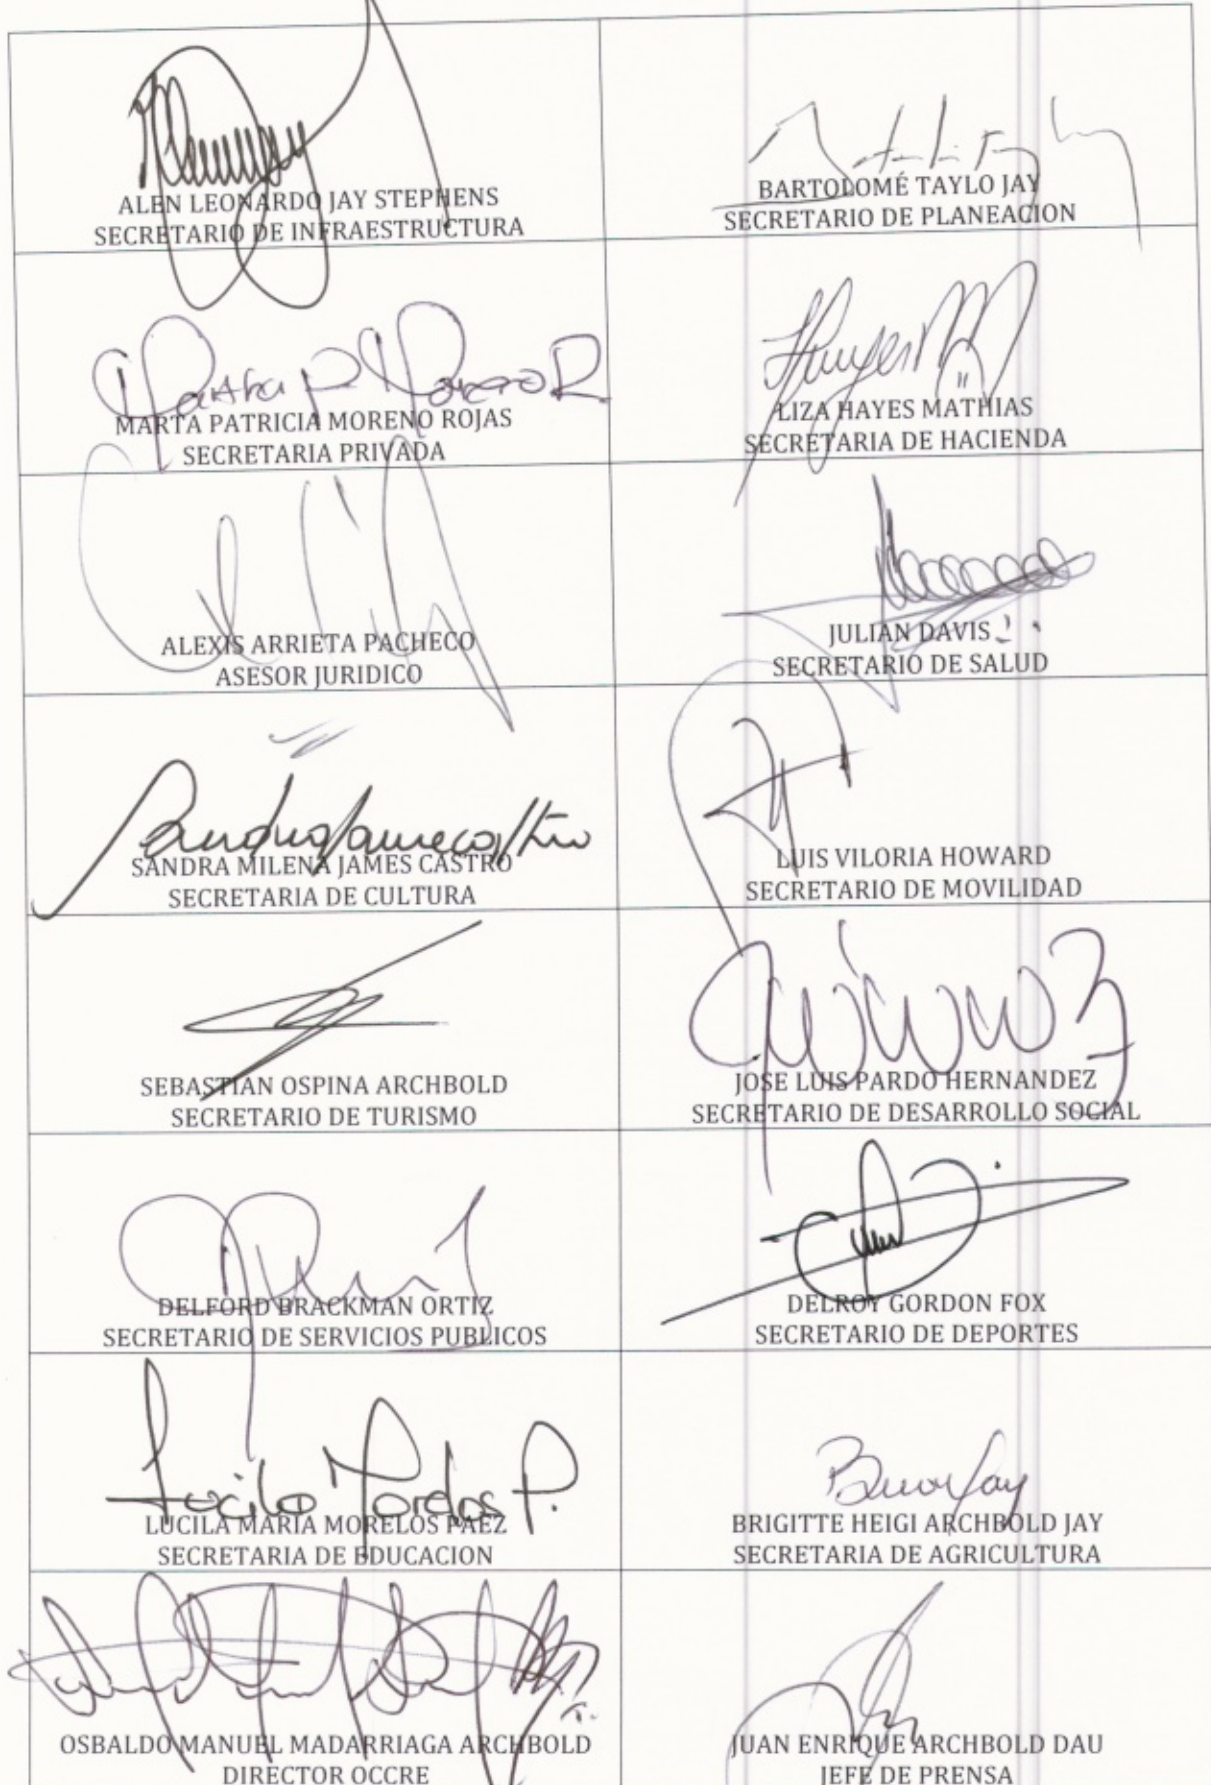 ALEN LEONARDO JAY STEPHENS
SECRETARIO DE INFRAESTRUCTURA
BARTOLOMÉ TAYLO JAY
SECRETARIO DE PLANEACION
MARTA PATRICIA MORENO ROJAS
SECRETARIA PRIVADA
LIZA HAYES MATHIAS
SECRETARIA DE HACIENDA
ALEXIS ARRIETA PACHECO
ASESOR JURIDICO
JULIAN DAVIS
SECRETARIO DE SALUD
SANDRA MILENA JAMES CASTRO
SECRETARIA DE CULTURA
LUIS VILORIA HOWARD
SECRETARIO DE MOVILIDAD
SEBASTIAN OSPINA ARCHBOLD
SECRETARIO DE TURISMO
JOSE LUIS PARDO HERNANDEZ
SECRETARIO DE DESARROLLO SOCIAL
DELFORD BRACKMAN ORTIZ
SECRETARIO DE SERVICIOS PUBLICOS
DELROY GORDON FOX
SECRETARIO DE DEPORTES
LUCILA MARIA MORELOS PAEZ
SECRETARIA DE EDUCACION
BRIGITTE HEIGI ARCHBOLD JAY
SECRETARIA DE AGRICULTURA
OSBALDO MANUEL MADARRIAGA ARCHBOLD
DIRECTOR OCCRE
JUAN ENRIQUE ARCHBOLD DAU
JEFE DE PRENSA